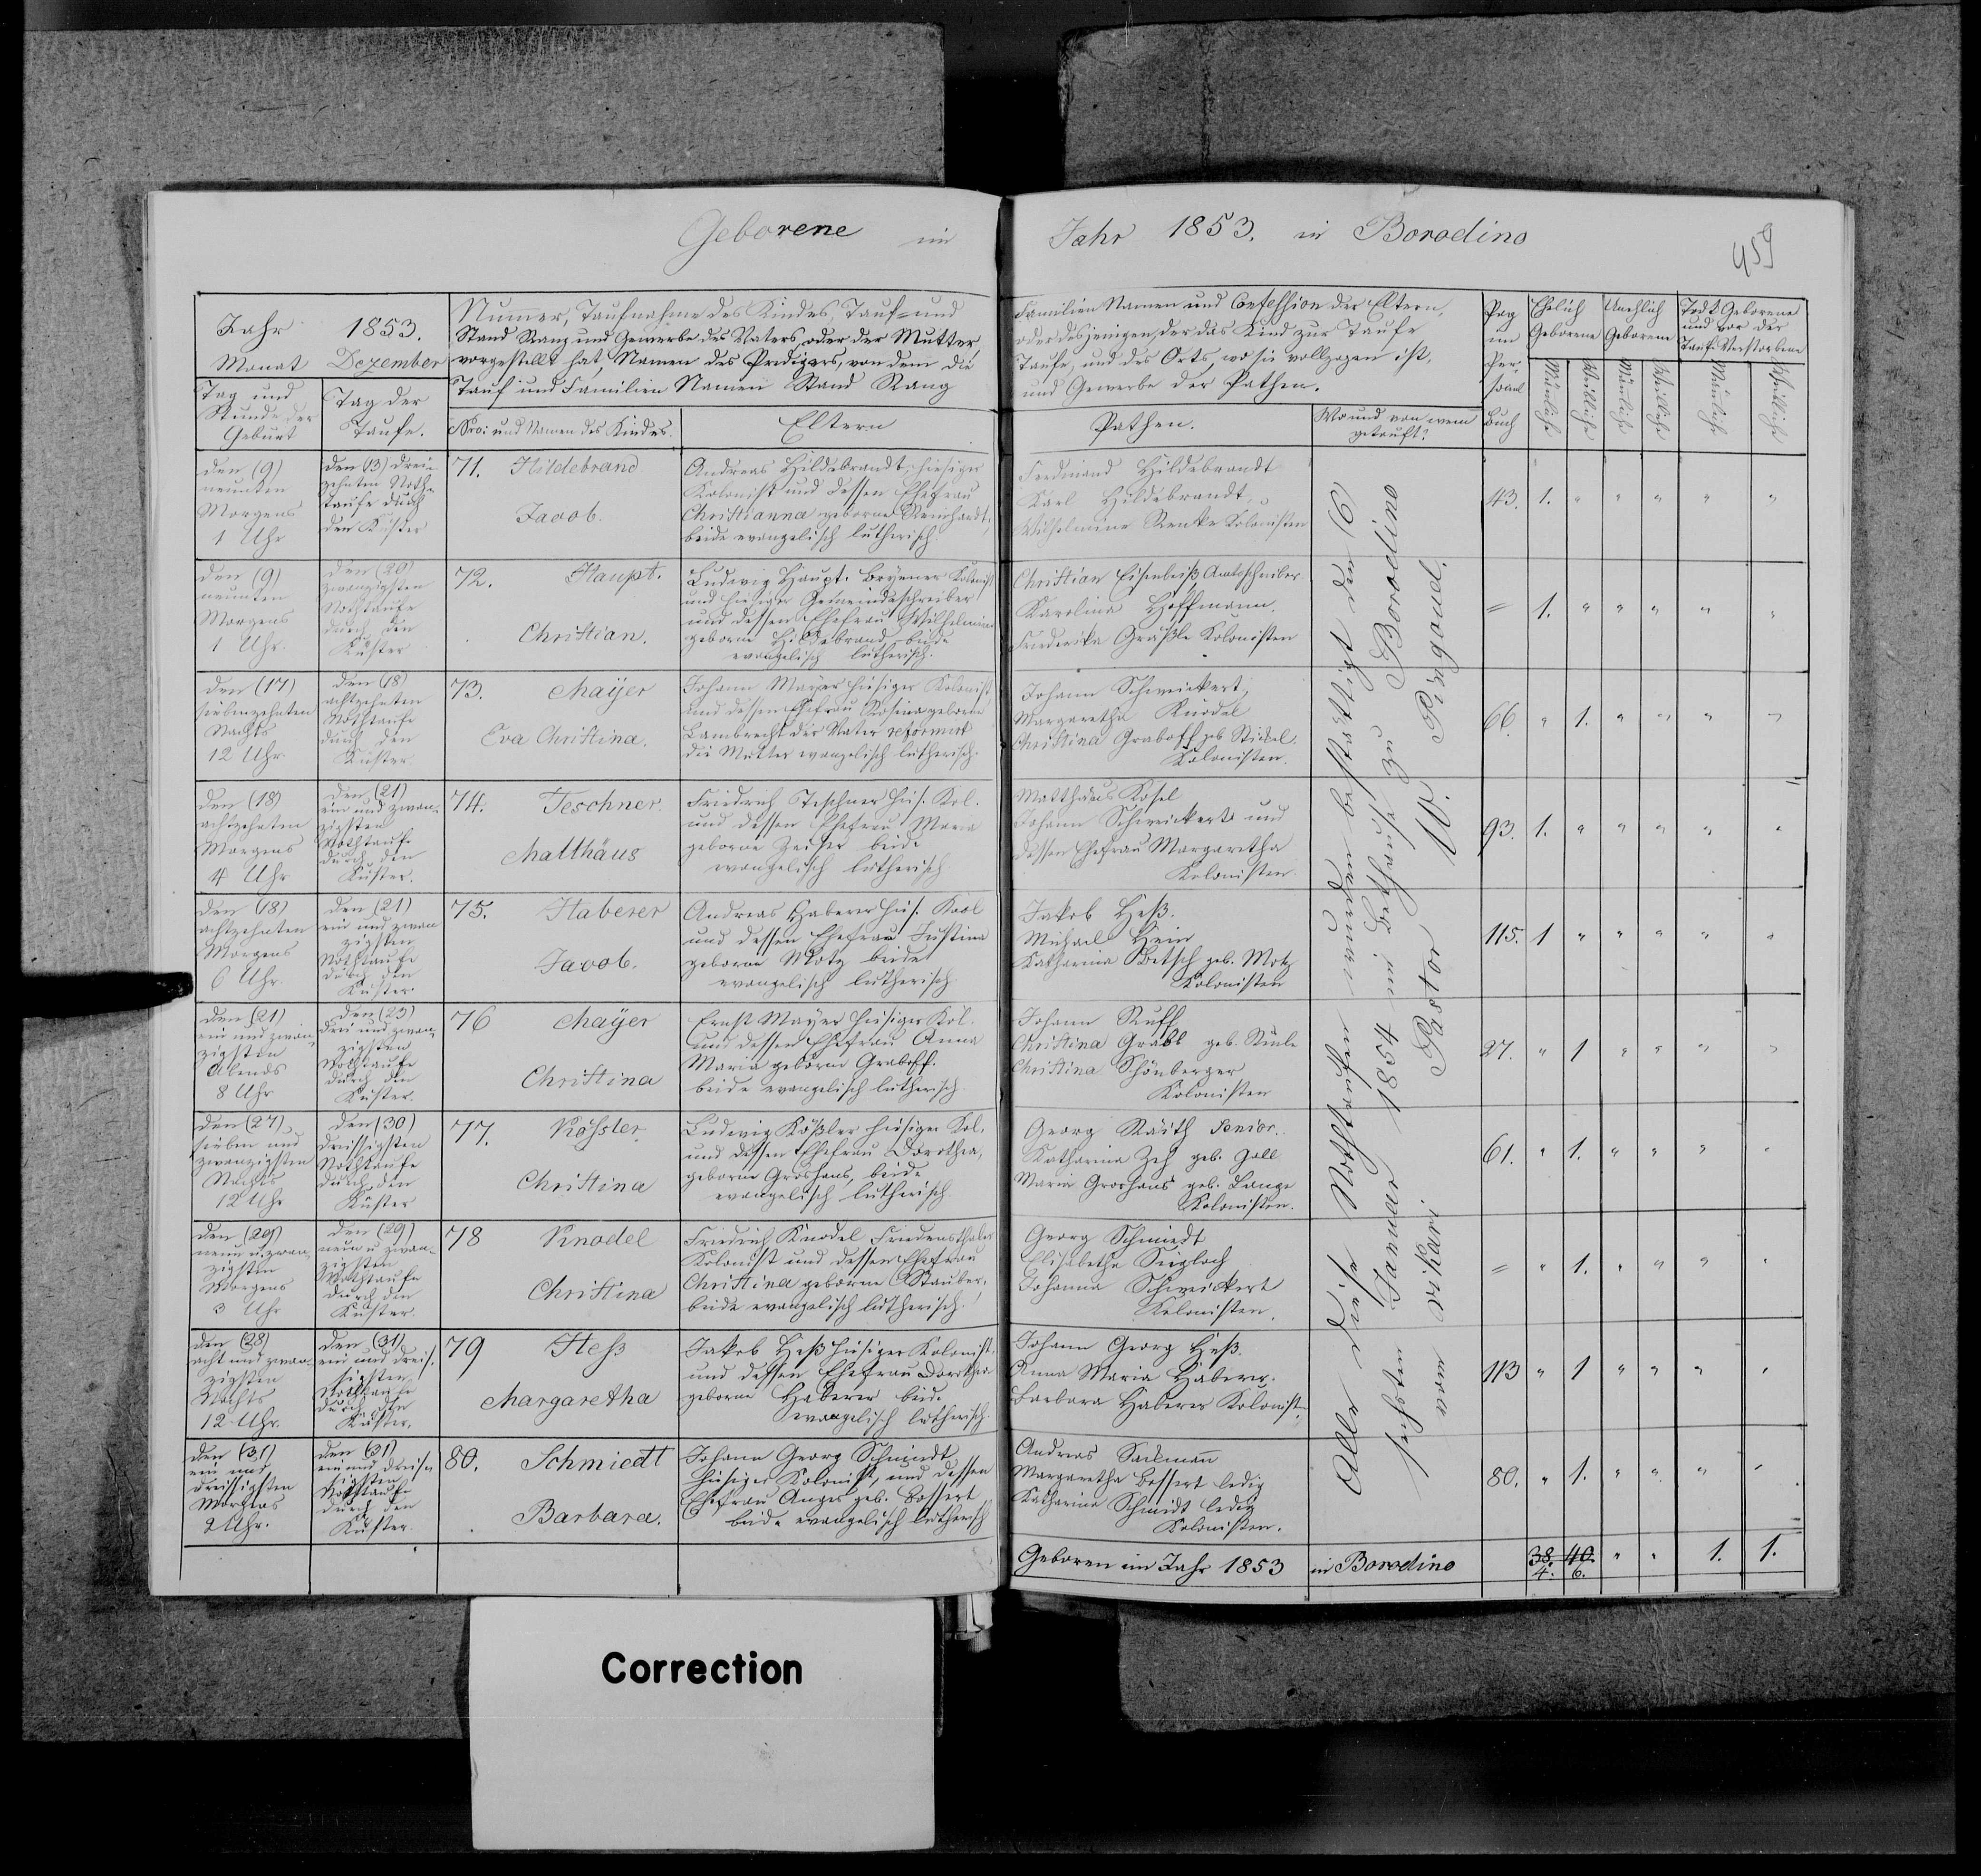 Geborene im Jahr 1853. in Borodino
459
Jahr 1853.
Monat Dezember
Tag und
Stunde der
Geburt
Tag der
Taufe.
Numer, Taufnahme des Kindes, Tauf- und
Stand Rang und Gewerbe des Vaters, oder der Mutter
vorgestellt hat, Namen des Predigers, von dem die
Tauf und Familien Namen Stand Rang
Nro: und Namen des Kindes.
Eltern
Familien Namen und Confession der Eltern,
oder desjenigen, der das Kind zur Taufe
Taufe, und des Orts, wo sie vollzogen ist,
und Gewerbe der Pathen.
Pathen.
Wo und von wem
getauft?
Pag
im
Per-
sonal
Buch
Ehelich
Geborene
Unehlich
Geborene
Todt Geborene
und vor der
Taufe Verstorbene
Männliche
Weibliche
Männliche
Weibliche
Männliche
Weibliche
den (9)
neunten
Morgens
1 Uhr
den (13) drei-
zehnten Noth-
taufe durch
den Küster
71. Hildebrand
Jacob.
Andreas Hildebrandt, hiesiger
Kolonist und dessen Ehefrau
Christianna geborne Reinhardt,
beide evangelisch lutherisch
Ferdinand Hildebrandt
Karl Hildebrandt,
Wilhelmine Renke Kolonisten
43. 1. " " " " "
den (9)
neunten
Morgens
1 Uhr.
den (20)
zwanzigsten
Nothtaufe
durch den
Küster
72. Haupt.
Christian.
Ludwig Haupt. Brienner Kolonist
und hiesiger Gemeindeschreiber
und dessen Ehefrau Wilhelmine
geborne Hildebrand beide
evangelisch lutherisch.
Christian Eisenbeiß Amtsschreiber
Karolina Hoffmann.
Friederika Gräßle Kolonisten
= 1. " " " " "
den (17)
siebenzehnten
Nachts
12 Uhr.
den (18)
achtzehnten
Nothtaufe
durch den
Küster.
73. Maÿer
Eva Christina.
Johann Mayer hiesiger Kolonist
und dessen Ehefrau Rosina geborne
Lambrecht der Vater reformirt
die Mutter evangelisch lutherisch.
Johann Schweickert,
Margaretha Knodel
Christina Graboff geb. Stickel.
Kolonisten.
66. " 1. " " " "
den (18)
achtzehnten
Morgens
4 Uhr
den (21)
ein und zwan-
zigsten
Nothtaufe
durch den
Küster.
74. Teschner
Matthäus
Friedrich Teschner hies. Kol.
und dessen Ehefrau Maria
geborne Zeiser beide
evangelisch lutherisch
Matthäus Kösel
Johann Schweickert und
dessen Ehefrau Margaretha
Kolonisten.
93. 1. " " " " "
den (18)
achtzehnten
Morgens
6 Uhr.
den (21)
ein und zwan
zigsten
Nothtaufe
durch den
Küster
75. Haberer
Jacob.
Andreas Haberer hies. Kool
und dessen Ehefrau Justina
geborne Motz beide
evangelisch lutherisch.
Jakob Heß.
Michael Hein
Katharina Betsch geb. Motz
Kolonisten
115. 1 " " " " "
den (21)
ein und zwan-
zigsten
Abends
8 Uhr
den (23)
drei und zwan-
zigsten
Nothtaufe
durch den
Küster.
76 Maÿer
Christina
Ernst Mayer hiesiger Kol.
und dessen Ehefrau Anna
Maria geborne Graboff.
beide evangelisch lutherisch.
Johann Ruff
Christina Grabl geb.
Christina Schönberger
Kolonisten
27. " 1 " " " "
den (27)
sieben und
zwanzigsten
Nachts
12 Uhr
den (30)
dreissigsten
Nothtaufe
durch den
Küster
77. Kossler
Christina
Ludwig Koßler hiesiger Kol.
und dessen Ehefrau Dorothea,
geborne Groshans, beide
evangelisch lutherisch
Georg Rauth Senior.
Katharina Zeh geb. Gall
Maria Groshans geb. Lange
Kolonisten.
61. " 1. " " " "
den (29)
neun u. zwan-
zigsten
Morgens
3 Uhr
den (29)
neun u zwan-
zigsten
Nothtaufe
durch den
Küster.
78 Knodel
Christina
Friedrich Knodel Friedensthaler
Kolonist und dessen Ehefrau
Christina geborne Stauber,
beide evangelisch lutherisch.
Georg Schmiedt
Elisabetha Sieglach
Johanna Schweickert
Kolonisten.
= " 1. " " " "
den (28)
acht und zwan-
zigsten
Nachts
12 Uhr.
den (31)
ein und dreis-
sigsten
Nothtaufe
durch den
Küster.
79 Heß
Margaretha
Jakob Heß hiesiger Kolonist.
und dessen Ehefrau Dorothea
geborne Haberer beide
evangelisch lutherisch.
Johann Georg Heß.
Anna Maria Haberer.
Barbara Haberer Kolonist.
113 " 1 " " " "
den (31)
ein und
dreissigsten
Morgens
2 Uhr.
den (31)
ein und dreis-
sigsten
Nothtaufe
durch den
Küster.
80. Schmiedt
Barbara.
Johann Georg Schmiedt
hiesiger Kolonist, und dessen
Ehefrau Agnes geb. Bossert
beide evangelisch lutherisch
Andreas Sackmann
Margaretha Bossert ledig
Katharina Schmidt ledig
Kolonisten.
80. " 1. " " " "
Alle diese Nothtaufen wurden bestättigt den (6)
sechsten Januar 1854 im Bethause zu Borodino
vom vikari Pastor W. Pingoud.
Geboren im Jahr 1853 in Borodino 38. 40. " " 1. 1.
4. 6.
Correction